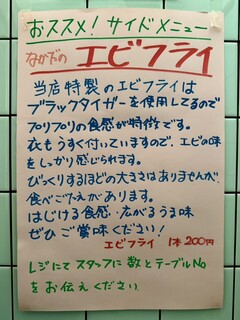 おススメ! サイドメニュー
なかだの エビフライ
当店特製のエビフライは
ブラックタイガーを使用してるので
プリプリの食感が特徴です。
衣もうすく付いていますので、エビの味
をしっかり感じられます。
びっくりするほどの大きさはありませんが、
食べごたえがあります。
はじける食感・広がるうま味
ぜひご賞味ください!
エビフライ 1本200円
レジにてスタッフに数とテーブルNo
をお伝えください